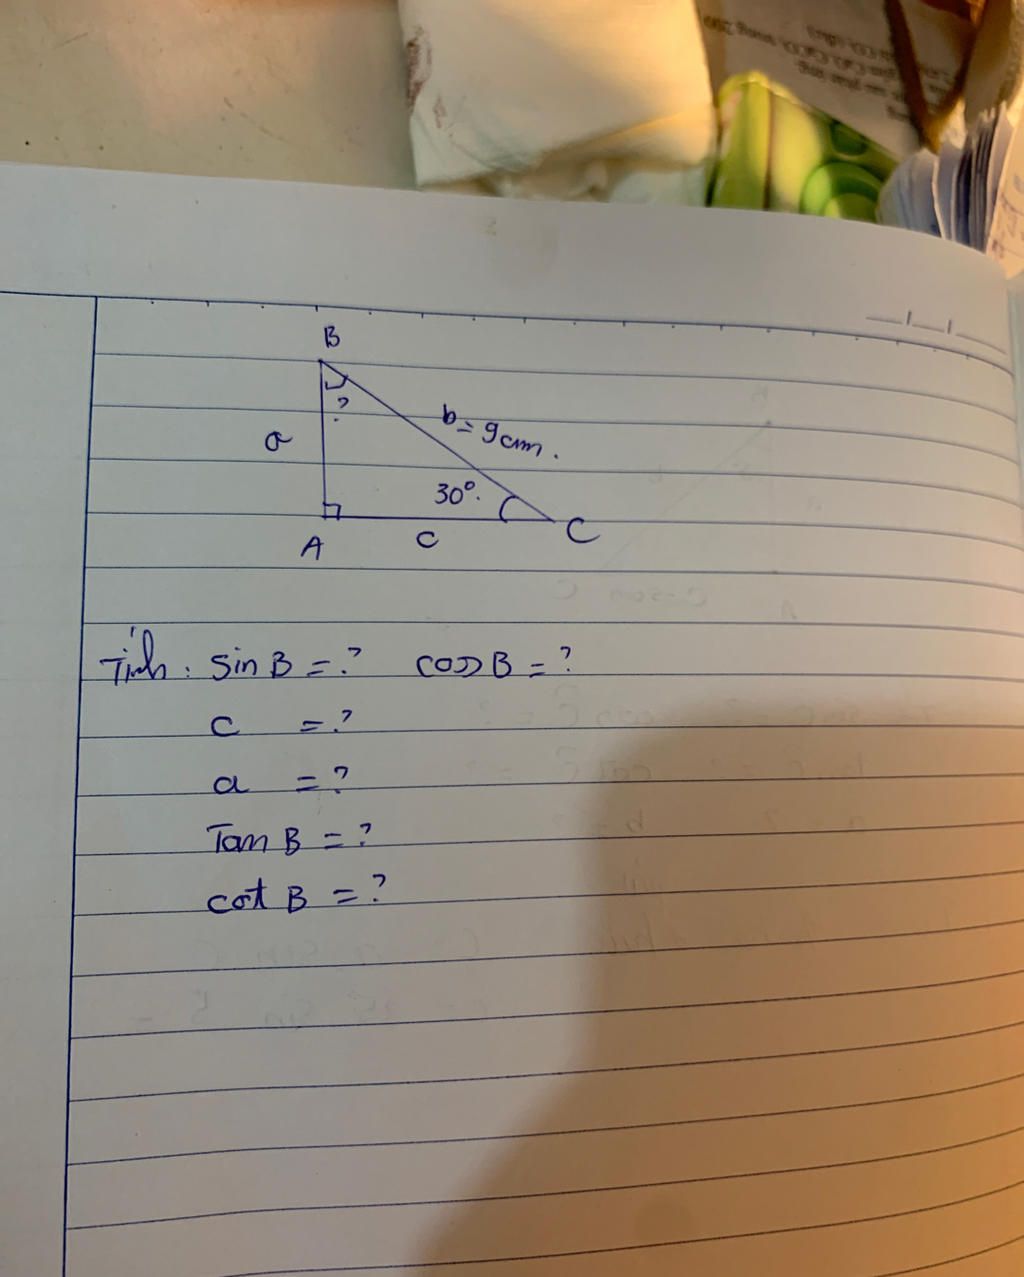 B
?
a
b = 9cm.
30°.
A
c
C
Tính: sin B = ? cos B = ?
c = ?
a = ?
Tan B = ?
cot B = ?